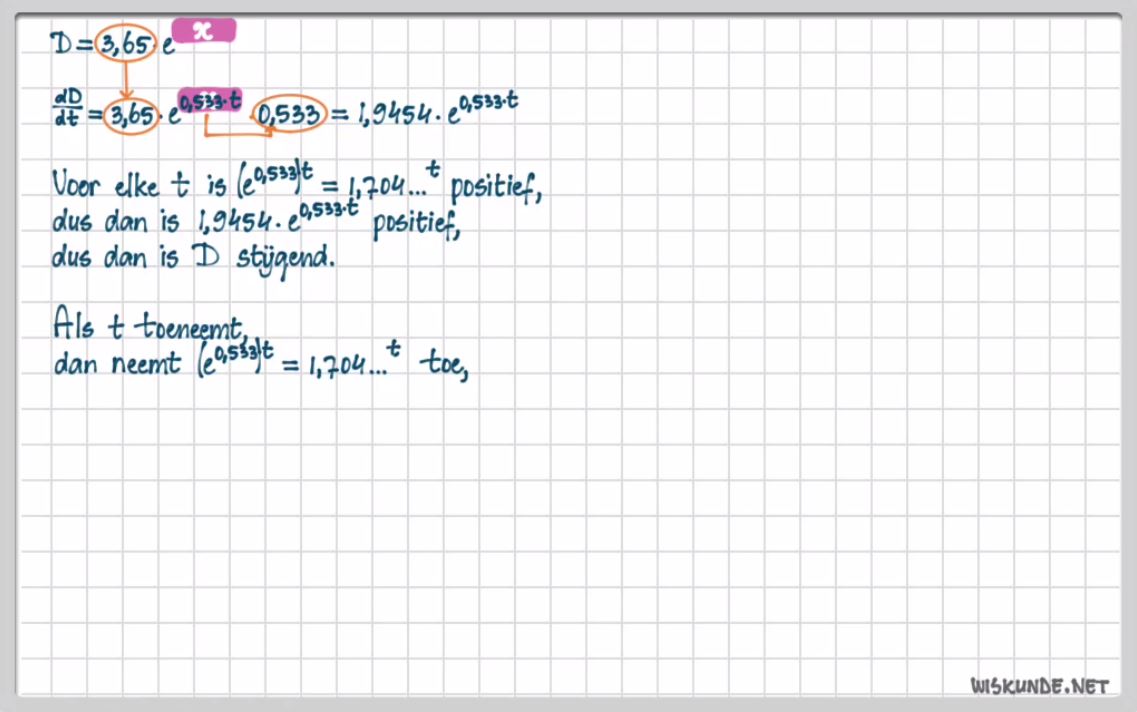 D = 3,65 · e^x
dD/dt = 3,65 · e^0,533·t · 0,533 = 1,9454 · e^0,533·t
Voor elke t is (e^0,533)^t = 1,704...^t positief,
dus dan is 1,9454 · e^0,533·t positief,
dus dan is D stijgend.
Als t toeneemt,
dan neemt (e^0,533)^t = 1,704...^t toe,
WISKUNDE.NET